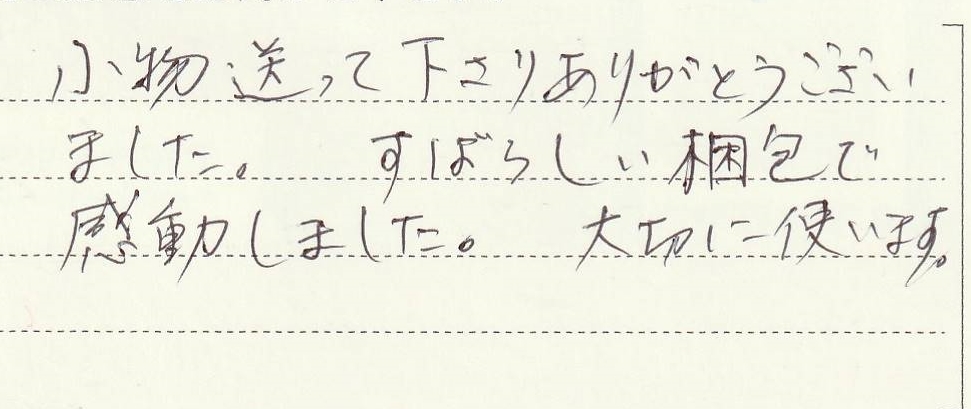 小物送って下さりありがとうござい
ました。 すばらしい梱包で
感動しました。 大切に使います。